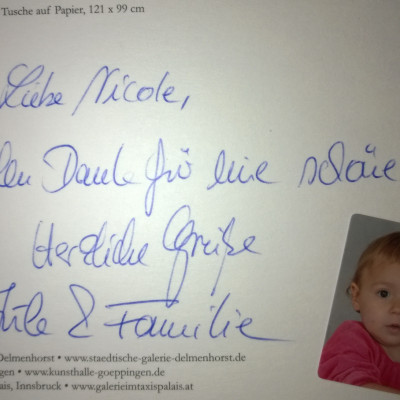 Tusche auf Papier, 121 x 99 cm
Liebe Nicole,
len Dank für eine schöne
Herzliche Grüße
& Familie
Delmenhorst • www.staedtische-galerie-delmenhorst.de
gen • www.kunsthalle-goeppingen.de
ais, Innsbruck • www.galerieimtaxispalais.at